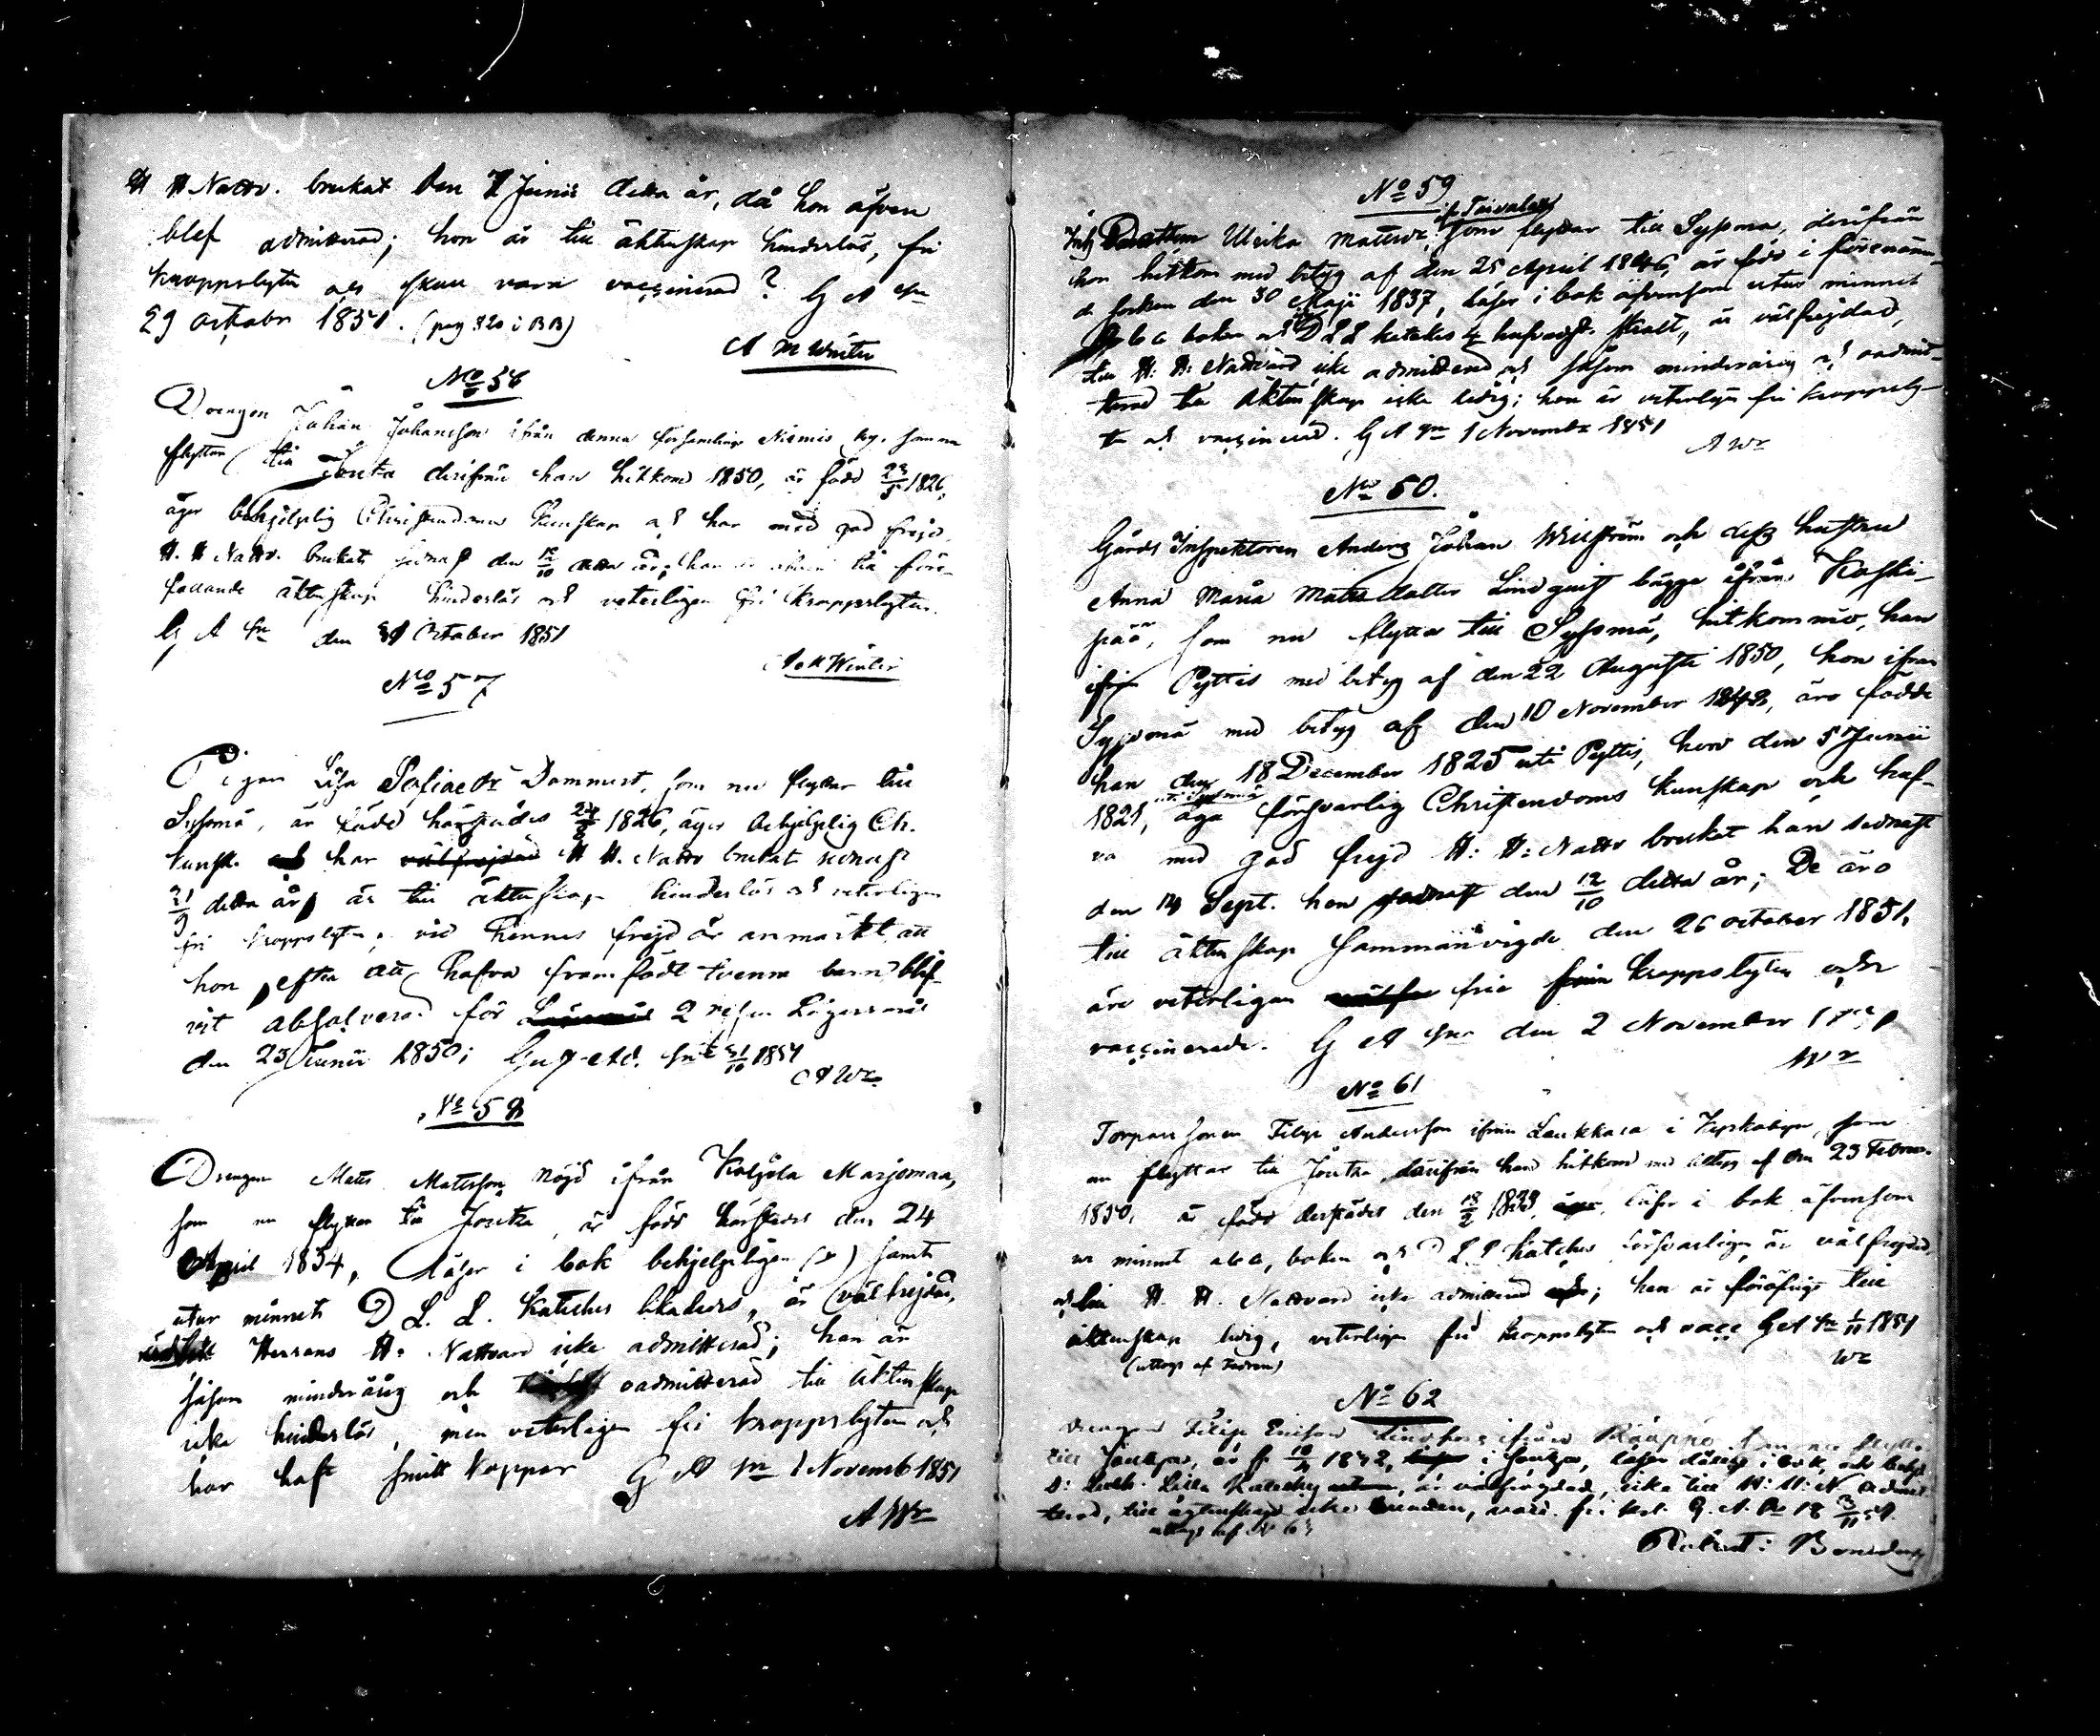 H H Nattv. brukat den 7 Junii detta år, då hon äfven
blef admitterad; hon är till äktenskap hinderlös, fri
kroppslyten och skall vara vaccinerad? G A
29 october 1851. (pag 320 i BB)
A M Winter
No 56
Drengen Johan Johansson ifrån denna församlings Niemis by, som nu
flyttar till Joutza derifrån han hitkom 1850, är född 1826,
äger behjelplig Christendoms Kunskap och har med god frejd
H. H Nattv. brukat sednast den 12/10 detta år; han är till före-
fallande äktenskap hinderlös och veterligen fri kroppslyten.
G A den 31 October 1851
A M Winter
No 57
Pigan Lisa Sofia dr Dammert, som nu flyttar till
Sysmä, är född härstädes 1826, äger behjelplig Ch.
kunsk. har H H. Nattv brukat sednast
21/9 detta år, är till äktenskap hinderlös och veterligen
fri kroppslyten; vid hennes frejd är anmärkt, att
hon, efter att hafva framfödt tvenne barn blif-
vit absolverad för 2 resan Lägersmål
den 23 Junii 1850; 31/10 1851
A Wr
No 58
Drengen Matts Mattsson Nöjd ifrån Koljola Marjomaa,
som nu flyttar till Joutza, är född härstädes den 24
April 1834, läser i bok behjelpligen (x) samt
utur minnet D L. L. Kateches likaledes, är välfrejdad,
Herrans H. Nattvard icke admitterad; han är
såsom minderårig och oadmitterad till äktenskap
icke hinderlös, men veterligen fri kroppslyten och
har haft smitt koppor G A 1 Novemb 1851
A Wr
No 59
Ulrika Mattsdr, som flyttar till Sysmä, derifrån
hon hitkom med betyg af den 25 April 1846, är född i förenämn-
d socken den 30 Maji 1837, läser i bok äfvensom utur minnet
a b c boken och D L L kateches är välfrejdad,
till H: H: Nattvard icke admitterad och såsom minderårig och oadmit-
terad till äktenskap icke ledig; hon är veterligen fri kroppsly-
te och vaccinerad. G A 1 November 1851
A Wr
No 60.
Gårds Inspektoren Anders Johan Willström och dess hustru
Anna Maria Mattsdotter Lindquist bägge ifrån Koski-
pää, som nu flytta till Sysmä, hitkommo, han
ifrån Pyttis med betyg af den 22 Augusti 1850, hon ifrån
Sysmä med betyg af den 10 November 1843, äro födde
han den 18 December 1825 uti Pyttis, hon den 5 Junii
1821, uti Sysmä äga försvarlig Christendoms kunskap och haf-
va med god frejd H: H: Nattv brukat han sednast
den 14 Sept. hon den 12/10 detta år; De äro
till äktenskap sammanvigde den 26 october 1851,
äro veterligen frie kroppslyten och
vaccinerade. G A den 2 November 1851
Wr
No 61
Torpare Sonen Filip Andersson ifrån Laukkala i, som
nu flyttar till Joutza, därifrån han hitkom med betyg af den 23 Februar.
1850, är född derstädes den 1833, läser i bok äfvensom
ur minnet abc, boken och D L L Kateches försvarligen, är välfrejdad,
H. H. Nattvard icke admitterad; han är föröfrigt till
äktenskap ledig, veterligen fri kroppslyten och vacc G A 1/11 1851
(uttagit af Fadren)
Wr
No 62
Drengen Filip Ericsson ifrån
till Joutza, är f. 1832, i Joutza, läser i bok, och
D: Luth: Lilla Kateches, är välfrejdad, icke till H: H: N. admit-
terad, till äktenskap icke bunden, vacc. fri G. A. 3/11 51.
Robert: Bonsdorff